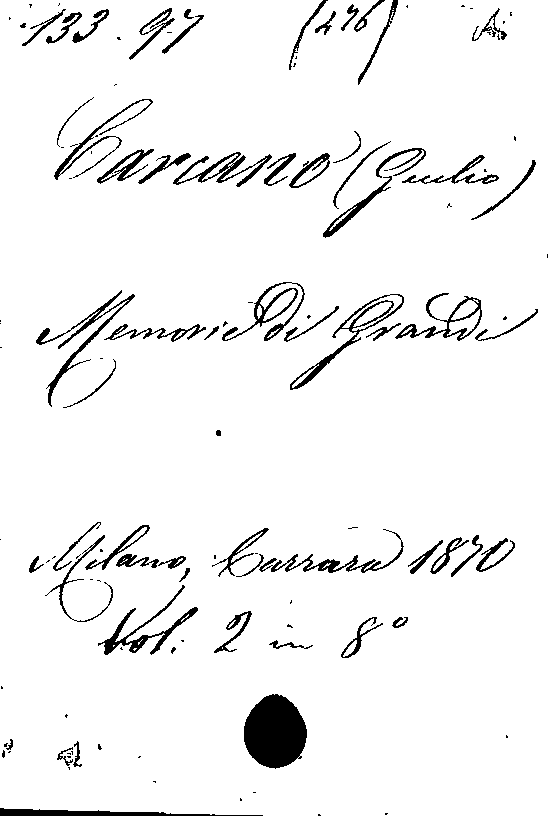 133.97 (276)
Carcano (Giulio)
Memorie di Grandi
Milano, Carrara 1870
Vol: 2 in 8°